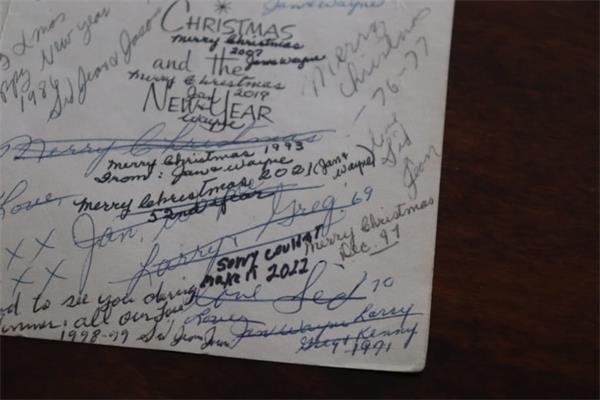 Jan & Wayne
CHRISTMAS
Merry Christmas
2007
Jan & Wayne
and the
Merry Christmas
Jan 2019
NEW YEAR
Wayne
Xmas
New year
1986
Sid Jean & Jaco
Merry
Christmas
76-77
Love
Sid
Jean
Merry Christmas
Merry Christmas 1993
From: Jan & Wayne
Merry Christmas 2021 (Jan &
Wayne)
52nd year
Love,
Jan,
XX
Larry, Greg. 69
XX
Sorry couldn't
make it 2022
Merry Christmas
Dec. 97
Love Sid 70
to see you during
all our love
1998-99 Sid Jean
Love
Jan Wayne Larry
Greg & Kenny
1971